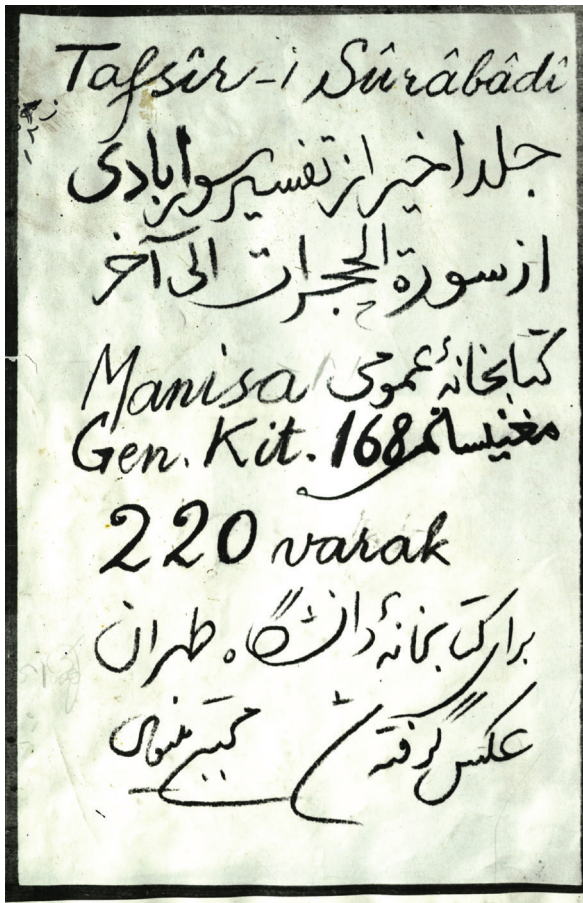 Tafsîr-i Sûrâbâdî
جلد اخیر از تفسیر سورابادی
از سورة الحجرات الی آخر
Manisa کتابخانهٔ عمومی
Gen. Kit. 168 مغنیسا نمر
220 varak
برای کتابخانهٔ دانشگاه طهران
عکس گرفته شد مجتبی مینوی